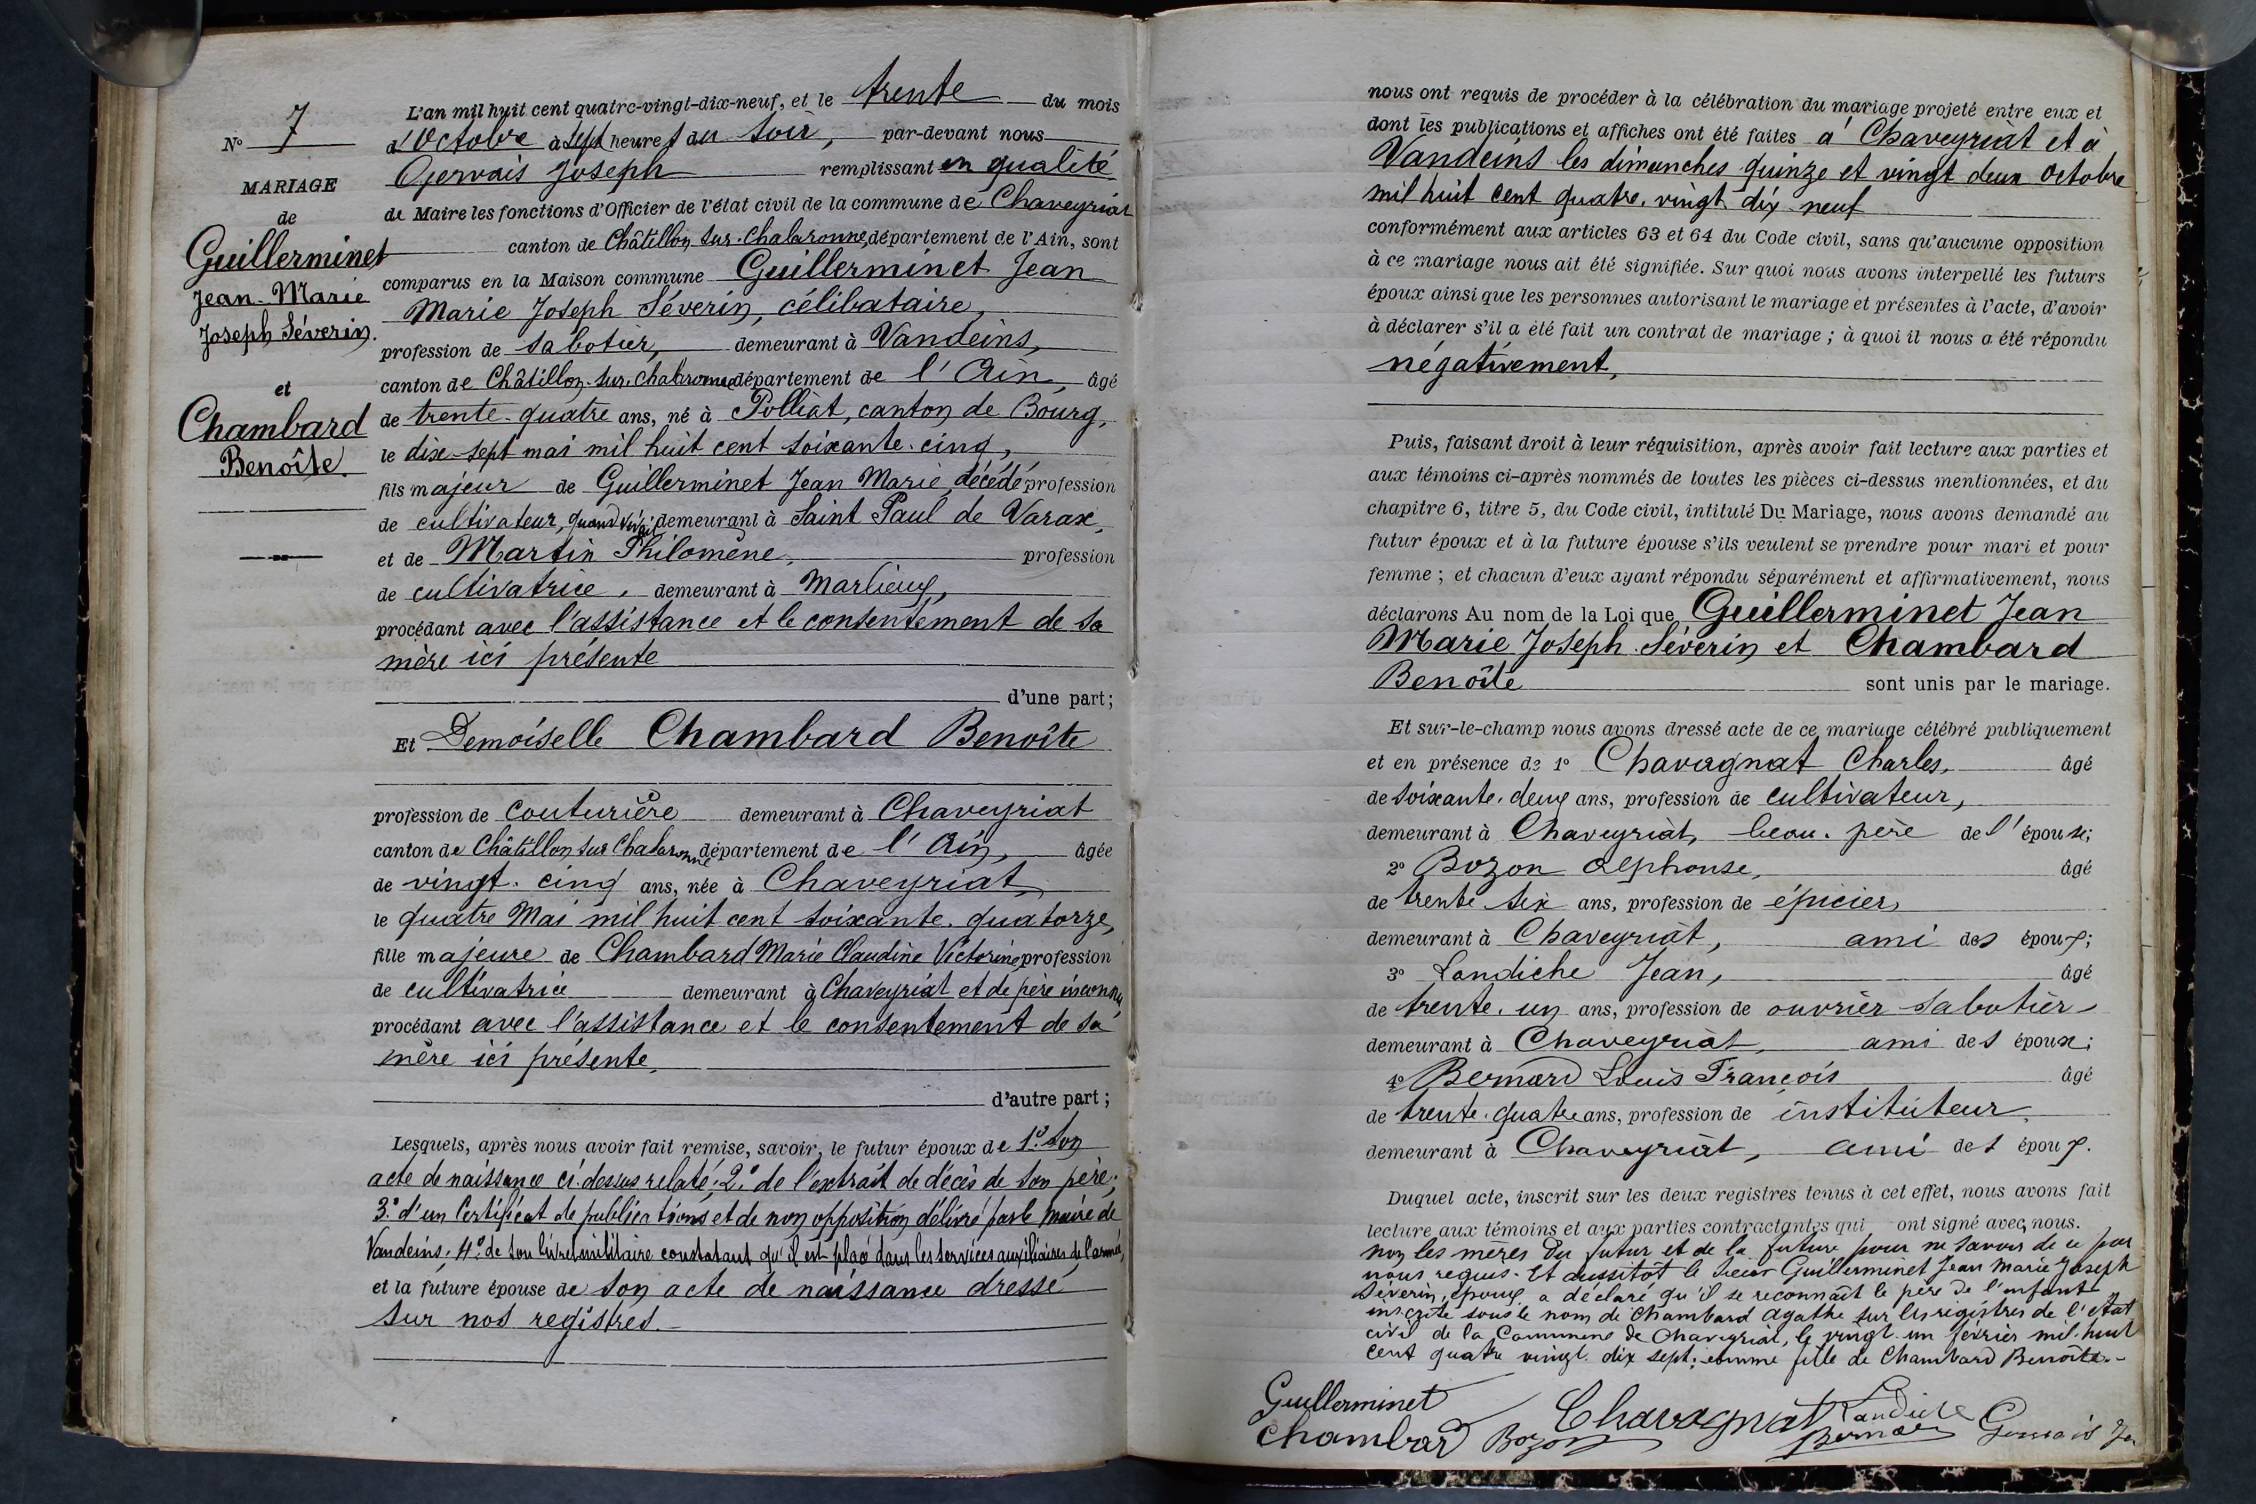 N° 7
MARIAGE
de
Guillerminet
Jean-Marie
Joseph Séverin.
et
Chambard
Benoîte
L'an mil huit cent quatre-vingt-dix-neuf, et le trente du mois
d'Octobre à sept heures du soir, par-devant nous
Gervais Joseph remplissant en qualité
de Maire les fonctions d'Officier de l'état civil de la commune de Chaveyriat
canton de Châtillon sur Chalaronne, département de l'Ain, sont
comparus en la Maison commune Guillerminet Jean
Marie Joseph Séverin, célibataire,
profession de sabotier, demeurant à Vandeins,
canton de Châtillon-sur-Chalaronne département de l'Ain, âgé
de trente-quatre ans, né à Polliat, canton de Bourg,
le dix-sept mai mil huit cent soixante-cinq,
fils majeur de Guillerminet Jean Marie, décédé profession
de cultivateur, quand vivait demeurant à Saint Paul de Varax,
et de Martin Philomène, profession
de cultivatrice, demeurant à Marlieux,
procédant avec l'assistance et le consentement de sa
mère ici présente
d'une part;
Et Demoiselle Chambard Benoîte
profession de couturière demeurant à Chaveyriat
canton de Châtillon sur Chalaronne département de l'Ain, âgée
de vingt-cinq ans, née à Chaveyriat,
le quatre Mai mil huit cent soixante-quatorze,
fille majeure de Chambard Marie Claudine Victorine profession
de cultivatrice demeurant à Chaveyriat et de père inconnu,
procédant avec l'assistance et le consentement de sa
mère ici présente,
d'autre part;
Lesquels, après nous avoir fait remise, savoir, le futur époux de 1° son
acte de naissance ci-dessus relaté; 2° de l'extrait de décès de son père;
3° d'un Certificat de publications et de non opposition délivré par le maire de
Vandeins; 4° de son livret militaire constatant qu'il est placé dans les services auxiliaires de l'armée,
et la future épouse de son acte de naissance dressé
sur nos registres.
nous ont requis de procéder à la célébration du mariage projeté entre eux et
dont les publications et affiches ont été faites à Chaveyriat et à
Vandeins les dimanches quinze et vingt deux octobre
mil huit cent quatre-vingt-dix-neuf
conformément aux articles 63 et 64 du Code civil, sans qu'aucune opposition
à ce mariage nous ait été signifiée. Sur quoi nous avons interpellé les futurs
époux ainsi que les personnes autorisant le mariage et présentes à l'acte, d'avoir
à déclarer s'il a été fait un contrat de mariage; à quoi il nous a été répondu
négativement,
Puis, faisant droit à leur réquisition, après avoir fait lecture aux parties et
aux témoins ci-après nommés de toutes les pièces ci-dessus mentionnées, et du
chapitre 6, titre 5, du Code civil, intitulé Du Mariage, nous avons demandé au
futur époux et à la future épouse s'ils veulent se prendre pour mari et pour
femme; et chacun d'eux ayant répondu séparément et affirmativement, nous
déclarons Au nom de la Loi que Guillerminet Jean
Marie Joseph Séverin et Chambard
Benoîte sont unis par le mariage.
Et sur-le-champ nous avons dressé acte de ce mariage célébré publiquement
et en présence de 1° Chavagnat Charles, âgé
de soixante-deux ans, profession de cultivateur,
demeurant à Chaveyriat, beau-père de l'épouse;
2° Bozon Alphonse, âgé
de trente six ans, profession de épicier,
demeurant à Chaveyriat, ami des époux;
3° Landiche Jean, âgé
de trente-un ans, profession de ouvrier sabotier,
demeurant à Chaveyriat, ami des époux;
4° Bernard Louis François âgé
de trente-quatre ans, profession de instituteur,
demeurant à Chaveyriat, ami des époux.
Duquel acte, inscrit sur les deux registres tenus à cet effet, nous avons fait
lecture aux témoins et aux parties contractantes qui ont signé avec nous.
non les mères du futur et de la future pour ne savoir de ce par
nous requis. Et aussitôt le sieur Guillerminet Jean Marie Joseph
Séverin, époux, a déclaré qu'il se reconnaît le père de l'enfant
inscrite sous le nom de Chambard Agathe sur les registres de l'état
civil de la Commune de Chaveyriat, le vingt-un février mil huit
cent quatre vingt dix sept; comme fille de Chambard Benoîte.
Guillerminet Chavagnat Landiche
Chambard Bozon Bernard Gervais